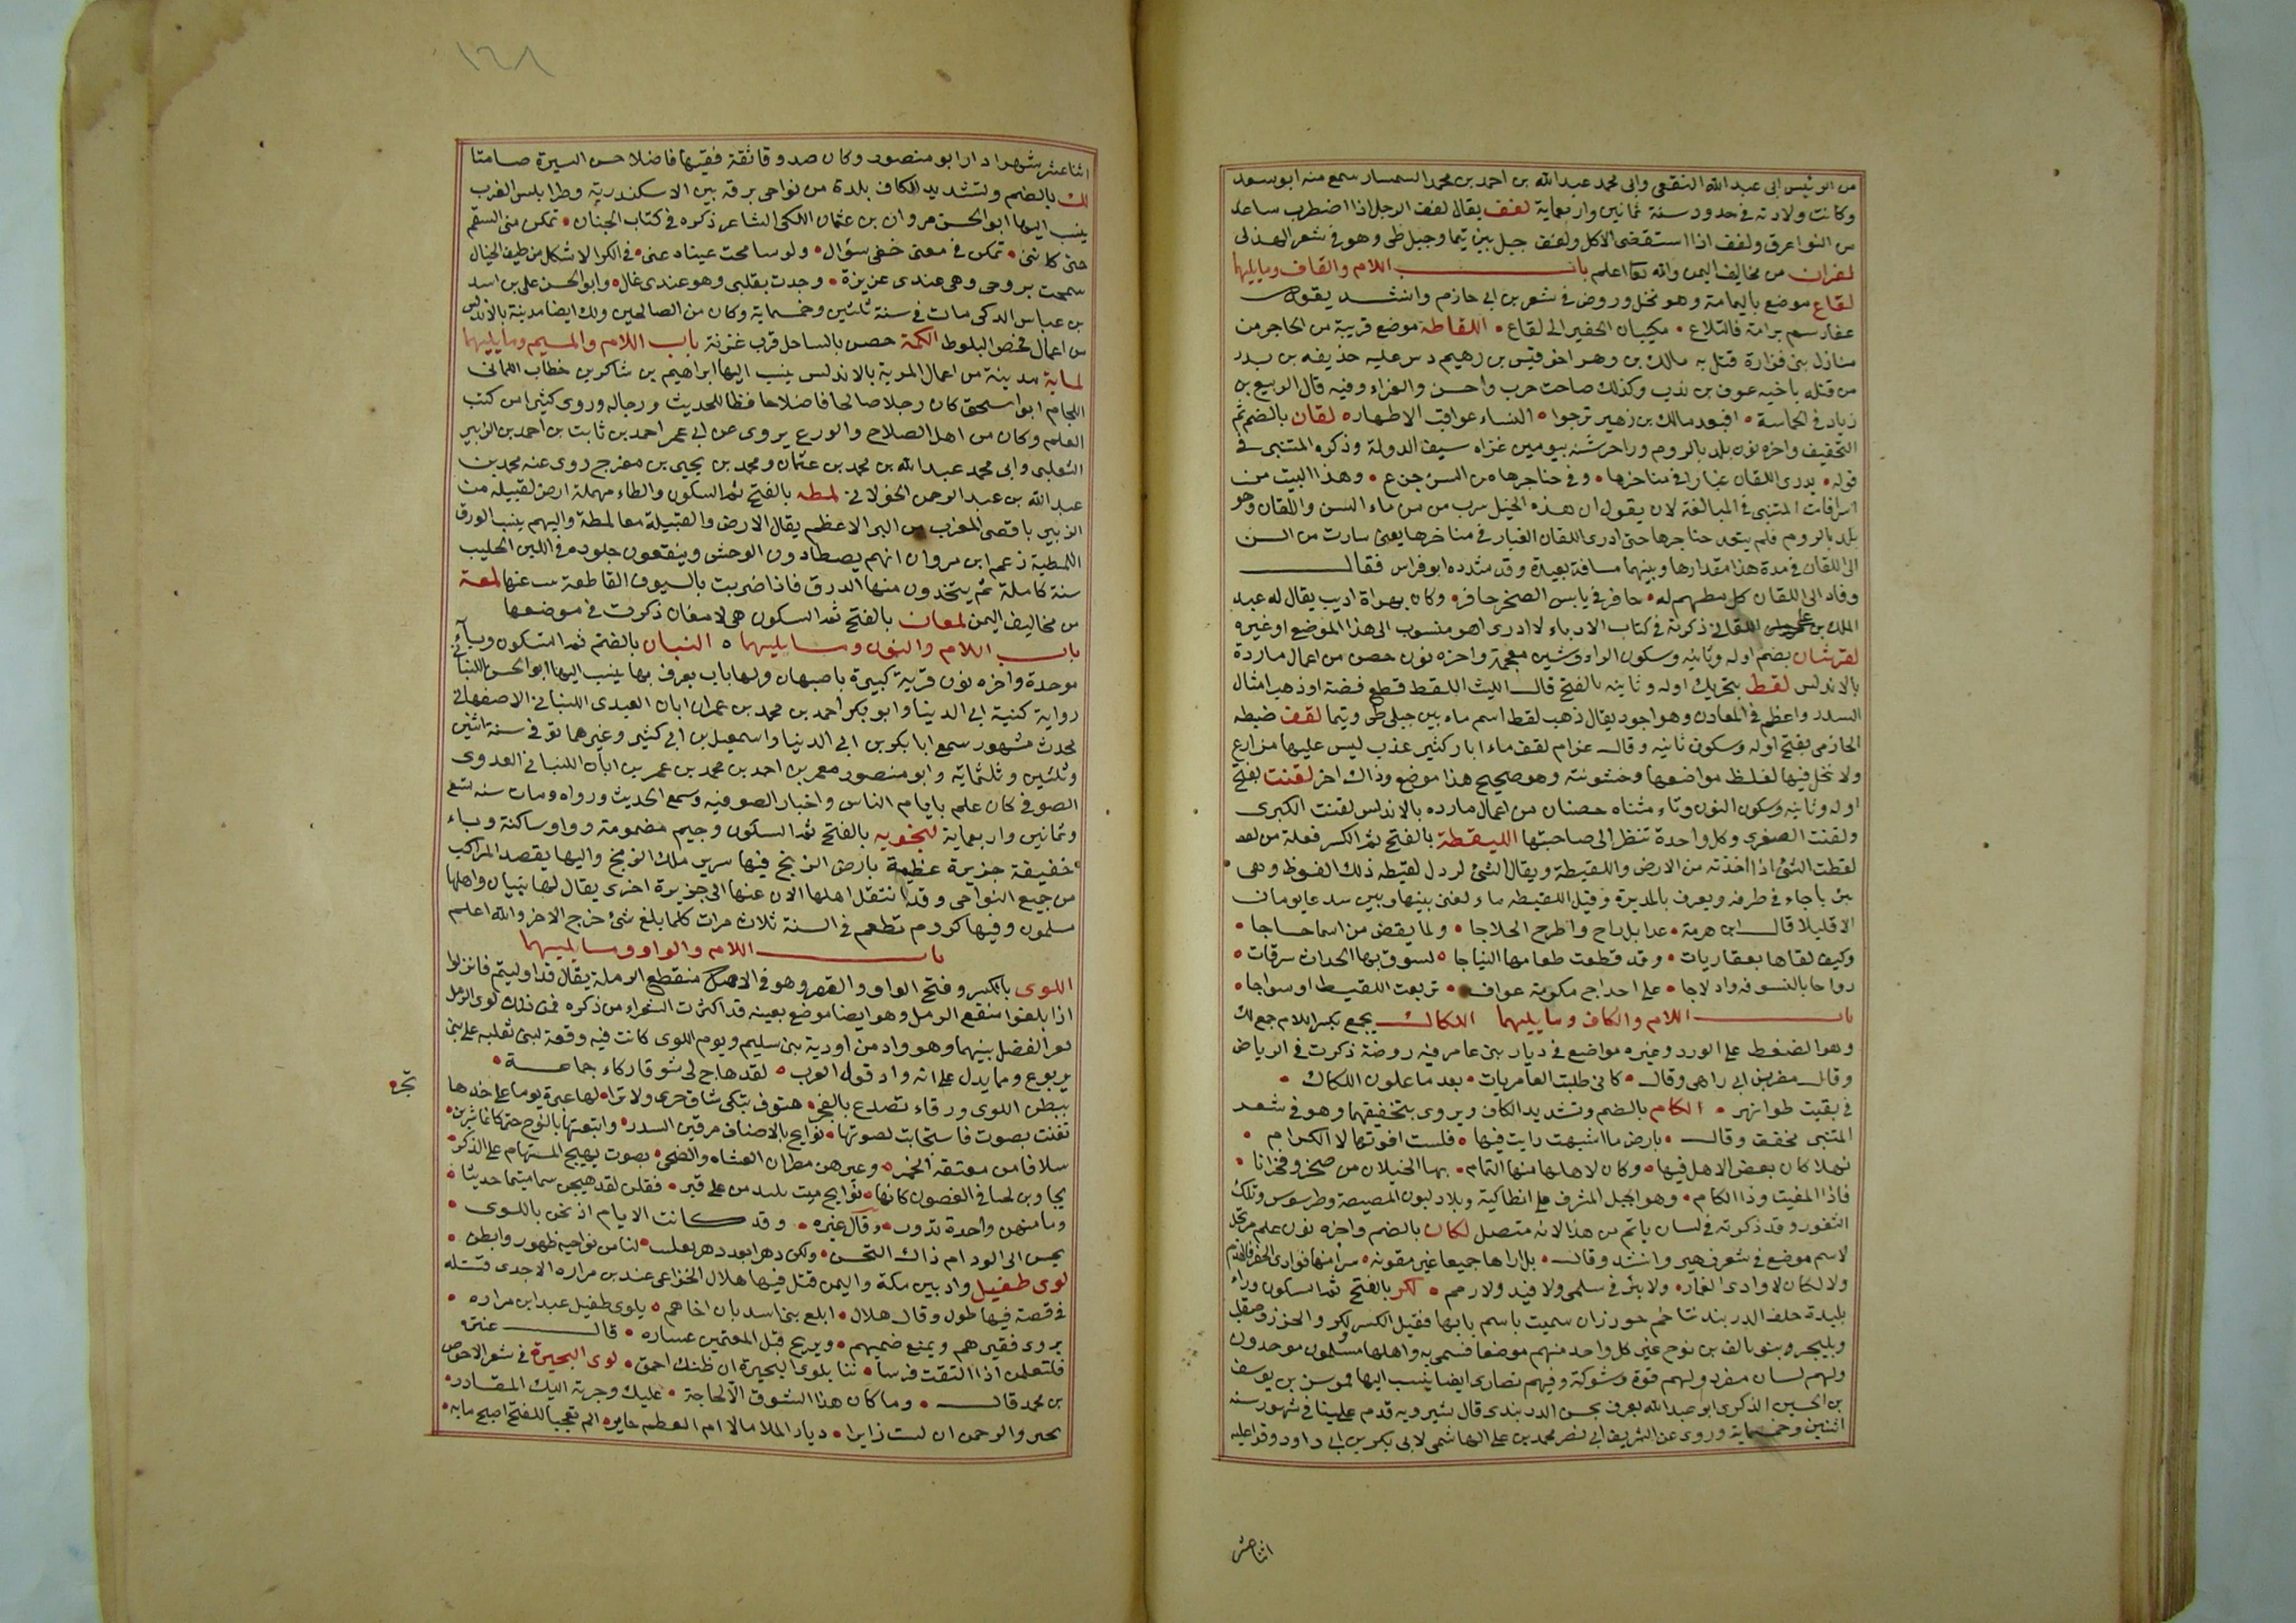 من الرئيس ابى عبد الله الثقفى وابى محمد عبد الله بن احمد بن محمد السمسار سمع منه ابو سعد
وكانت ولادته فى حدود سنة ثمانين واربعماية لفف يقال لفف الرجل اذا اضطرب ساعده
من التواء عرق ولفف اذا استقصى الاكل ولفف جبل بين تيما وجبل طى وهو فى شعر الهذلى
لفران من مخاليف اليمن والله تعا اعلم باب اللام والقاف وما يليهما
لقاع موضع باليمامة وهو نخل وروض فى شعر بن ابى حازم وانشد يقول
عفا رسم برامة فالتلاع • مكيبان الحفير الى لقاع • اللقاطه موضع قريبة من الحاجر من
منازل بنى فزارة قتل به مالك بن وهر اخو قيس بن زهيم دس عليه حذيفه بن بدر
من قتله باخيه عوف بن بدر وكذلك صاحت حرب واحسن والغزاء وفيه قال الربيع بن
زياد فى الحماسة • افبعد مالك بن زهير ترجوا • النساء عواقب الاطهار • لقان بالضم ثم
التخفيف واخره نون بلد بالروم وراء خرشنه بيومين غزاه سيف الدولة وذكره المتنبى فى
قوله • يدرى اللقان غبارا فى مناخرها • وفى حناجرها من السن جزع • وهذا البيت من
اسرافات المتنبى فى المبالغة لان يقول ان هذه الخيل سرب من ماء السن واللقان وهو
بلد بالروم فلم يتعد حناجرها حتى ادرى اللقان الغبار فى مناخرها يعنى سارت من السن
الى اللقان فى مدة هذا مقدارها وبينهما مسافة بعيدة وقد شدده ابو فراس فقال
وقاد الى اللقان كل مطهم له • حافر فى يابس الصخر حافر • وكان بهراة اديب يقال له عبد
الملك بن على اللقانى ذكرته فى كتاب الادباء لا ادرى اهو منسوب الى هذا الموضع او غيره
لقرشان بضم اوله وثانيه وسكون الراء وشين معجمة واخره نون حصن من اعمال ماردة
بالاندلس لقط بتحريك اوله وثانيه بالفتح قال الليث اللقط قطع فضة او ذهب امثال
السدر واعظم فى المعادن وهو اجود يقال ذهب لقط اسم ماء بين جبلى طى وتيما لقف ضبطه
الحازمى بفتح اوله وسكون ثانيه وقال عزام لقف ماء ابار كثير عذب ليس عليها مزارع
ولا نخل فيها لغلظ مواضعها وخشونته وهو صحيح هذا موضع وذاك اخر لقنت بفتح
اوله وثانيه وسكون النون وتاء مثناه حصنان من اعمال مارده بالاندلس لقنت الكبرى
ولقنت الصغرى وكل واحدة تنظر الى صاحبتها الليقطة بالفتح ثم الكسر فعلة من لقد
لقطت الشئ اذا اخذته من الارض واللقيطة ويقال لشئ لردل لقيطه ذلك الفوظ وهى
بئر باجاء فى طرفه ويعرف بالمديرة وقيل اللقيطه ماء لغنى بينها وبين سد عايومان
الا قليلا قال ابن هرمة • عدا بل راح واطرح الحلاجا • ولما يقض من اسما حاجا •
وكيف لقاها بعقاريات • وقد قطعت طعامها النياجا • لسوق بها الحداث سرقات •
رواحا بالنسوفه وادلاجا • على احداج مكومة عواف • تربعت اللقيط او سواجا •
باب اللام والكاف وما يليهما اللكاك يجمع بكسر اللام جمع لك
وهو الضغط على الورد وغيره مواضع فى ديار بنى عامر فيه روضة ذكرت فى الرياض
وقال مضرس ابى راهى وقال • كانى طلبت العامريات • بعد ما علون اللكاك •
فى بقيت طوابهر • الكام بالضم وتشديد الكاف ويروى بتخفيفهما وهو فى شعر
المتنبى مخفف وقال • بارض ما اشبهت رايت فيها • فلست افوتها لا الكرام •
فهلا كان بعض الاهل فيها • وكان لاهلها منها التمام • بها الخيلان من صخر وفخرانا •
فاذا المغيت وذا الكام • وهو الجبل المشرف على انطاكية وبلاد لبون المصيصة وطرسوس وتلك
الثغور وقد ذكرته فى لسان ياتم من هذا لانه متصل لكان بالضم واخره نون علم مرتجل
لاسم موضع فى شعر زهير وانشد وقال • بل اراها جميعا غير مقونه • سرا منها فوادى الحفر فالهدم
ولا لكان لا وادى الغمار • ولا بئر فى سلمى ولا فيد ولا رهم • لكز بالفتح ثم السكون وراء
بليدة خلف الدربند تتاخم خورزان سميت باسم بابها فقيل الكسر لكز والخزز وصقلب
وبليجره بنو يافث بن نوح غير كل واحد منهم موضعا فسمى به واهلها مسلمون موحدون
ولهم لسان مفرد ولهم قوة وشوكة وفيهم نصارى ايضا ينسب اليها موسى بن يوسف
بن الحسين الذكرى ابو عبد الله يعرف بحسن الدربندى قال شيرويه قدم علينا فى شهور سنة
اثنين وخمسماية وروى عن الشريف ابى نصر محمد بن على الهاشمى لابى بكر بن ابى داود وقراعليه
اثناعشر
١٦٨
اثنا عشر شهرا دار ابو منصور وكان صدوقا ثقة فقيها فاضلا حسن السيرة صامتا
لك بالضم وتشديد الكاف بلدة من نواحى برقه بين الاسكندرية وطرابلس الغرب
ينسب اليها ابو الحسن مروان بن عثمان اللكى الشاعر ذكره فى كتاب الجنان • تمكن منى السقم
حتى كاننى • تمكن فى معنى خفى سؤال • ولو سامحت عيناه عنى • فى الكرا لاشكل من طيف الخيال
سمحت بروحى وهى عندى عزيزة • وجدت بقلبى وهو عندى غال • وابو الحسن على بن اسد
بن عباس الدكى مات فى سنة ثلثين وخمسماية وكان من الصالحين ولك ايضا مدينة بالاندلس
من اعمال فحص البلوط الكمة حصن بالساحل قرب غزنة باب اللام والميم وما يليهما
لماية مدينة من اعمال المرية بالاندلس ينسب اليها ابراهيم بن شاكر بن خطاب اللمائى
اللجام ابو اسحق كان رجلا صالحا فاضلا حافظا للحديث ورجاله وروى كثيرا من كتب
العلم وكان من اهل الصلاح والورع يروى عن ابى عمر احمد بن ثابت بن احمد بن الزبير
الثعلبى وابى محمد عبد الله بن محمد بن عثمان ومحمد بن يحيى بن مفرج روى عنه محمد بن
عبد الله بن عبد الرحمن الخولانى لمطه بالفتح ثم السكون والطاء مهملة ارض لقبيله من
الزبير باقصى المغرب من البر الاعظم يقال الارض والقبيلة معا لمطة واليهم ينسب الورق
اللمطية زعم ابن مروان انهم يصطادون الوحش وينقعون جلوده فى اللبن الحليب
سنة كاملة ثم يتخذون منها الدرق فاذا ضربت بالسيوف القاطعة نب عنها لمعة
من مخاليف اليمن لمعان بالفتح ثم السكون هى لامغان ذكرت فى موضعها
باب اللام والنون وما يليهما • النبان بالضم ثم اسكون وباء
موحدة واخره نون قرية كبيرة باصبهان ولها باب يعرف بها ينسب اليها ابو الحسن اللنبانى
رواية كنية ابى الدينا وابو بكر احمد بن محمد بن عمران ابان العبدى اللنبانى الاصفهانى
محدث مشهور سمع ابا بكر بن ابى الدينا واسمعيل بن ابى كثير وغيرهما توفى سنة اثنين
وثلثين وثلثماية وابو منصور معمر بن احمد بن محمد بن عمر بن ابان اللنبانى العدوى
الصوفى كان علم بايام الناس واخبار الصوفيه وسمع الحديث ورواه ومات سنه تسع
وثمانين واربعماية لنجويه بالفتح ثم السكون وجيم مضمومة وواو ساكنة وباء
خفيفة جزيرة عظيمة بارض الزنج فيها سرير ملك الزنج واليها يقصد المراكب
من جميع النواحى وقد انتقل اهلها الان عنها الى جزيرة اخرى يقال لها تنبان واهلها
مسلمون وفيها كروم تطعم فى السنة ثلاث مرات كلما بلغ شئ خرج الاخر والله اعلم
باب اللام والواو وما يليهما
اللوى بالكسر وفتح الواو والقصر وهو فى الاصل منقطع الرملة يقال قد اوليتم فانزلوا
اذا بلغوا منقع الرمل وهو ايضا موضع بعينه قد اكثرت الشعراء من ذكره فمن ذلك لوى الرمل
فعز الفضل بينهما وهو واد من اودية بنى سليم ويوم اللوى كانت فيه وقعة لبنى ثعلبه على بنى
يربوع ومما يدل على انه واد قول العرب • لقد هاج لى شوقا بركاء حمامة •
ببطن اللوى ورقاء تصدع بالفجر • هتوف تبكى شاق حرى ولا ترا • لها عبرة يوما على خدها
تجرى
تغنت بصوت فاستجابت لصوتها • نوايح بالاصناف مرقين السدر • واتبعتها بالنوح حتى كانما شربن
سلافا من معتقة الخمر • وعبرهن مطران العشاء والضحى • بصوت يهيج المستهام على الذكر •
يجاوبن لحنا فى الغصون كانها • نوايح ميت يلبد من على قبر • فقلن لقد هيجن سمامتيما حديثا •
وما منهن واحدة تدرى • وقال غيره • وقد كانت الايام اذ نحن باللوى •
يمسى الى الود ام ذاك التحسن • ولكن دهرا بعد دهر بعلب • لنا من نواحيه ظهور وابطن •
لوى طفيل واد بين مكة واليمن قتل فيها هلال الخزاعى عند بن مراره الاجدى فتتله
فى قصة فيها طول وقال هلال • ابلغ بنى اسد بان اخاهم • بلوى طفيل عبد ابن مراره •
يروى فقيرهم ويمنع ضميهم • ويريح قبل المعتمين عساره • قال عنترة
فلتعلمن اذا التقت فرسانا • بلوى البحيرة ان ظنك احمق • لوى البحيرة فى شعر الاحوص
بن محمد قال • وما كان هذا الشوق الا لحاجة • عليك وجرته اليك المقادر •